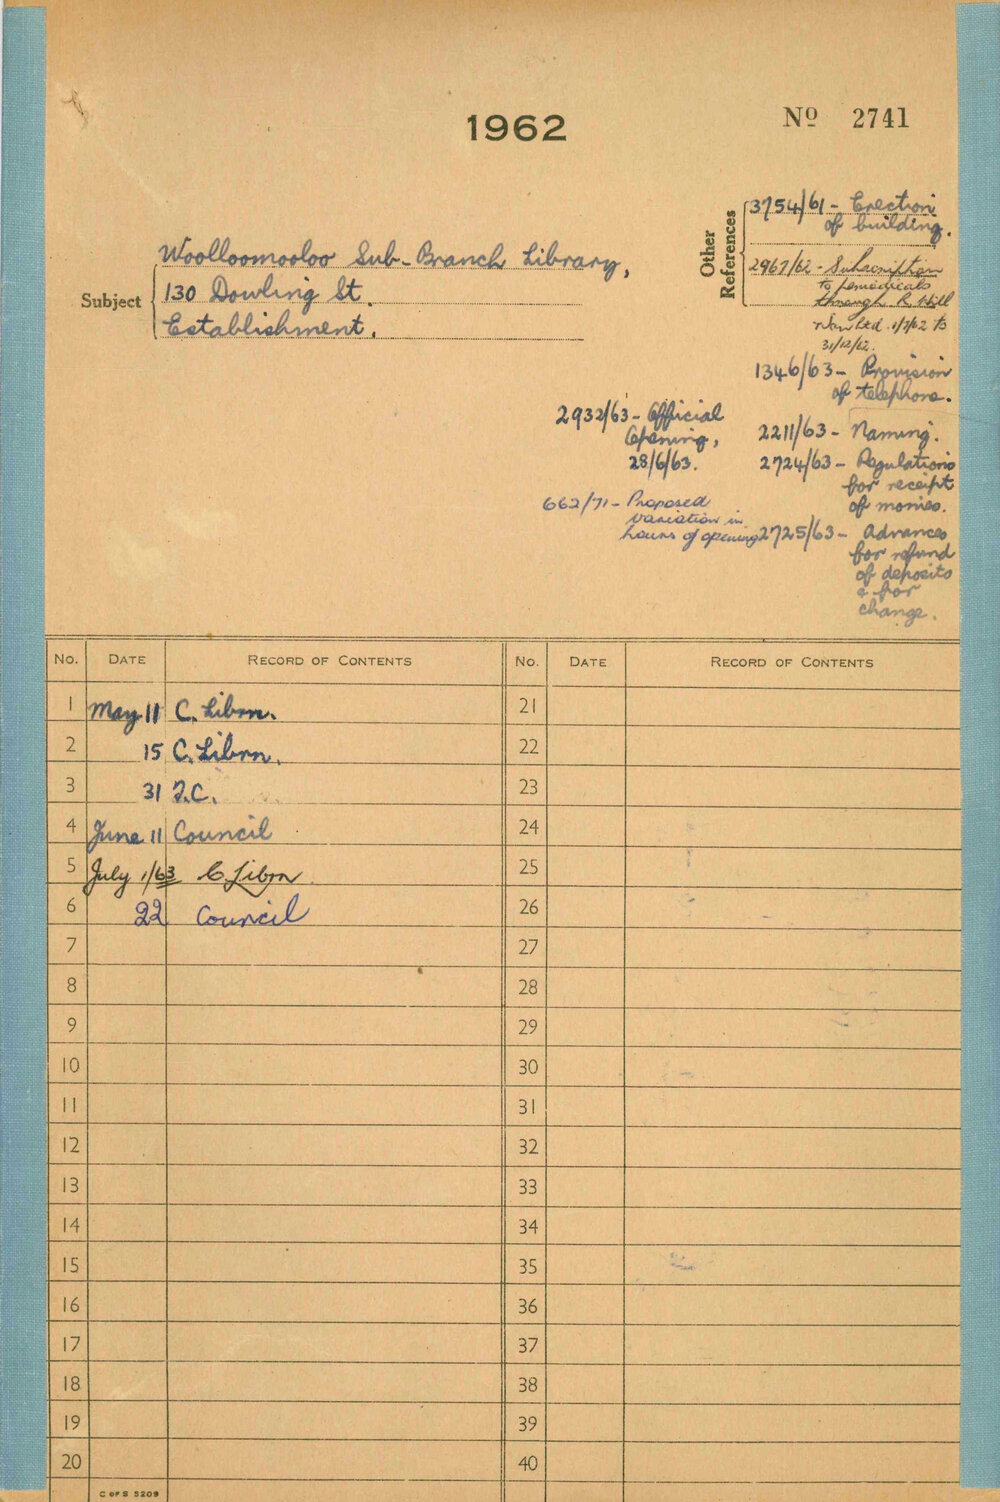 1962
Nº 2741
Other
References
3754/61 - Erection
of building.
2967/62 - Subscription
to periodicals
through R. Hill
31/12/62.
1346/63 - Provision
of telephone.
2211/63 - Naming.
2724/63 - Regulations
for receipt
of monies.
2725/63 - Advances
for refund
of deposits
& for
change.
2932/63 - Official
Opening,
28/6/63.
662/71 - Proposed
variation in
hours of opening
Subject
Woolloomooloo Sub-Branch Library,
130 Dowling St.
Establishment.
No. DATE RECORD OF CONTENTS No. DATE RECORD OF CONTENTS
1 May 11 C. Librn. 21
2 15 C. Librn. 22
3 31 F.C. 23
4 June 11 Council 24
5 July 1/63 C Librn 25
6 22 Council 26
7 27
8 28
9 29
10 30
11 31
12 32
13 33
14 34
15 35
16 36
17 37
18 38
19 39
20 40
C OF S 5209